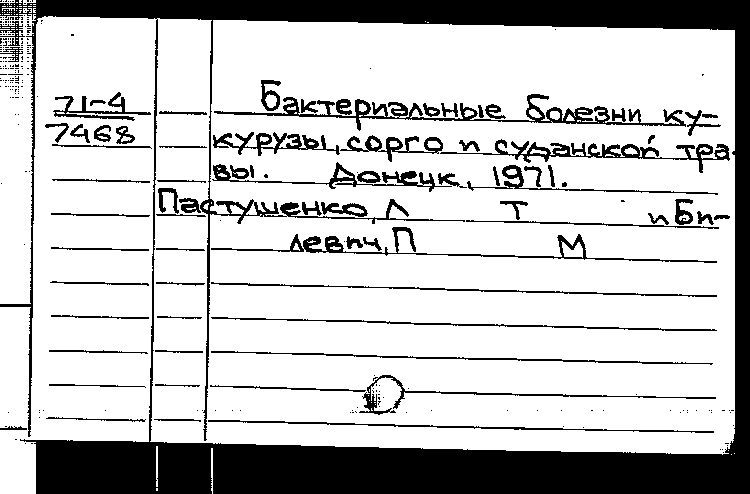 71-4
7468
Бактериальные болезни ку-
курузы, сорго и суданской тра-
вы. Донецк, 1971.
Пастушенко, Л Т и Би-
левич, П М